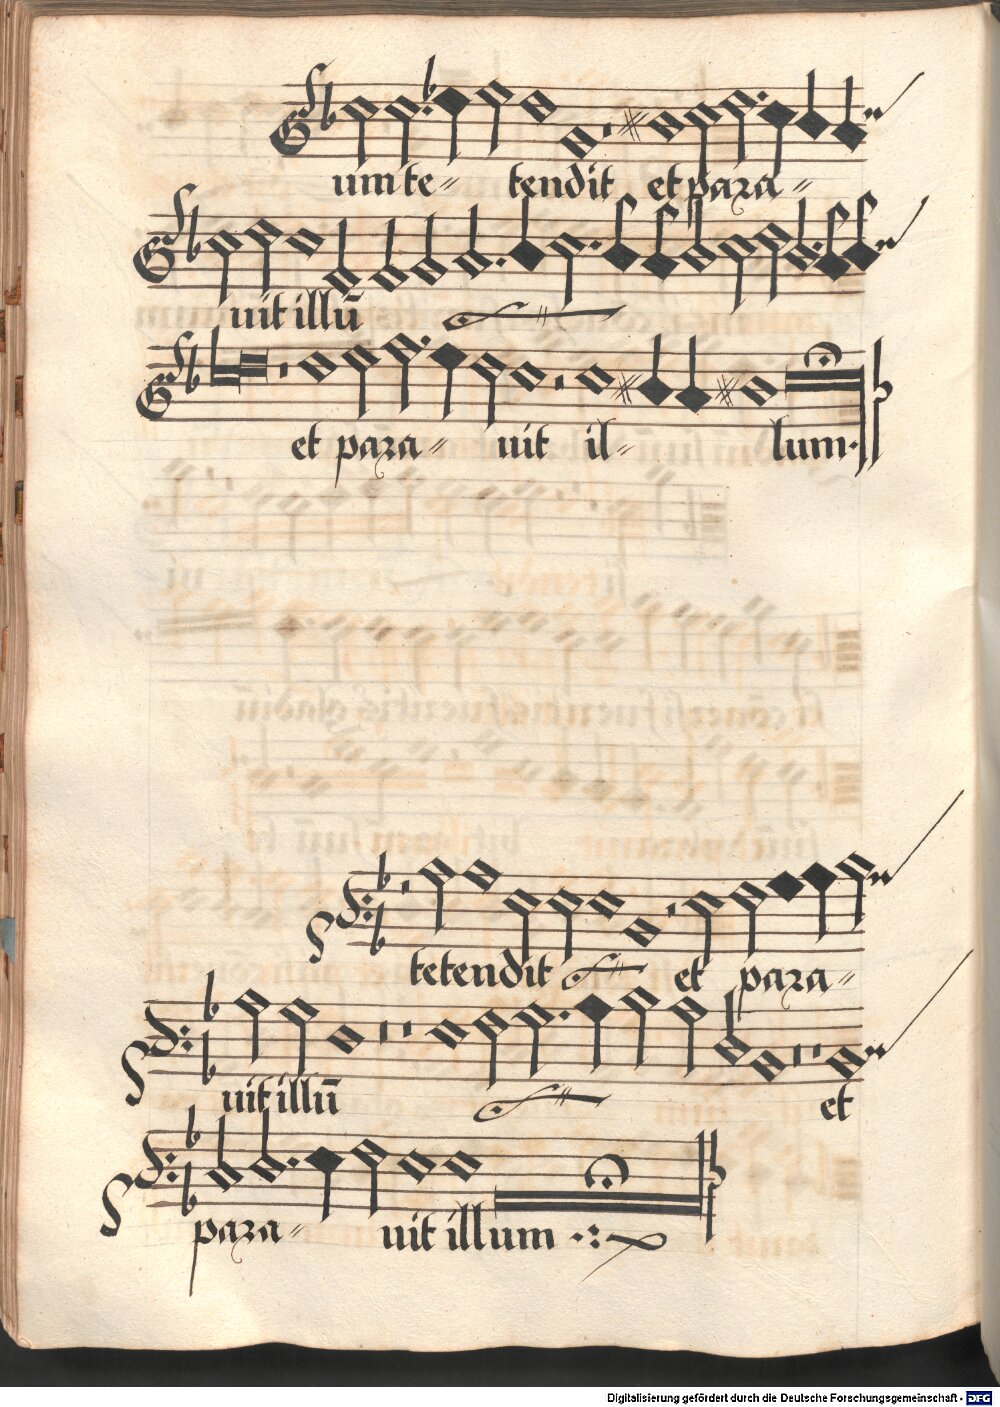 um te= tendit et para=
uit illū
et para= uit il= lum.
tetendit et para=
uit illū et
para= uit illum
Digitalisierung gefördert durch die Deutsche Forschungsgemeinschaft - DFG